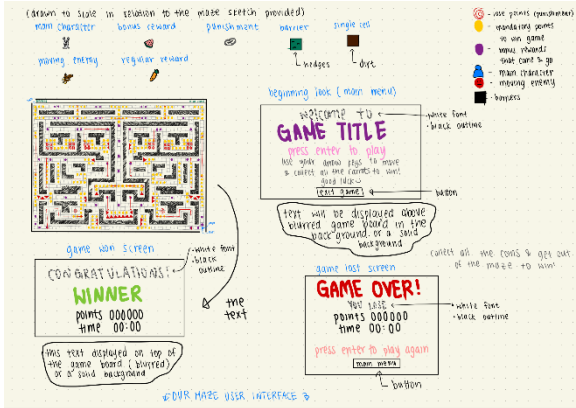 (drawn to scale in relation to the maze sketch provided)
main character
bonus reward
punishment
barrier
single cell
hedges
dirt
moving enemy
regular reward
- lose points (punishment)
- mandatory points
to win game
- bonus rewards
that come & go
- main character
- moving enemy
- barriers
beginning look (main menu)
welcome to
GAME TITLE
press enter to play
use your arrow keys to move
& collect all the carrots to win!
good luck
exit game
- white font
- black outline
button
text will be displayed above
blurred game board in the
background or a solid
background
game won screen
CONGRATULATIONS!
WINNER
points 000000
time 00:00
- white font
- black
outline
the
text
this text displayed on top of
the game board (blurred)
or a solid background
collect all the coins & get out
of the maze to win!
game lost screen
GAME OVER!
YOU LOSE
points 000000
time 00:00
press enter to play again
main menu
- white font
- black outline
button
OUR MAZE USER INTERFACE